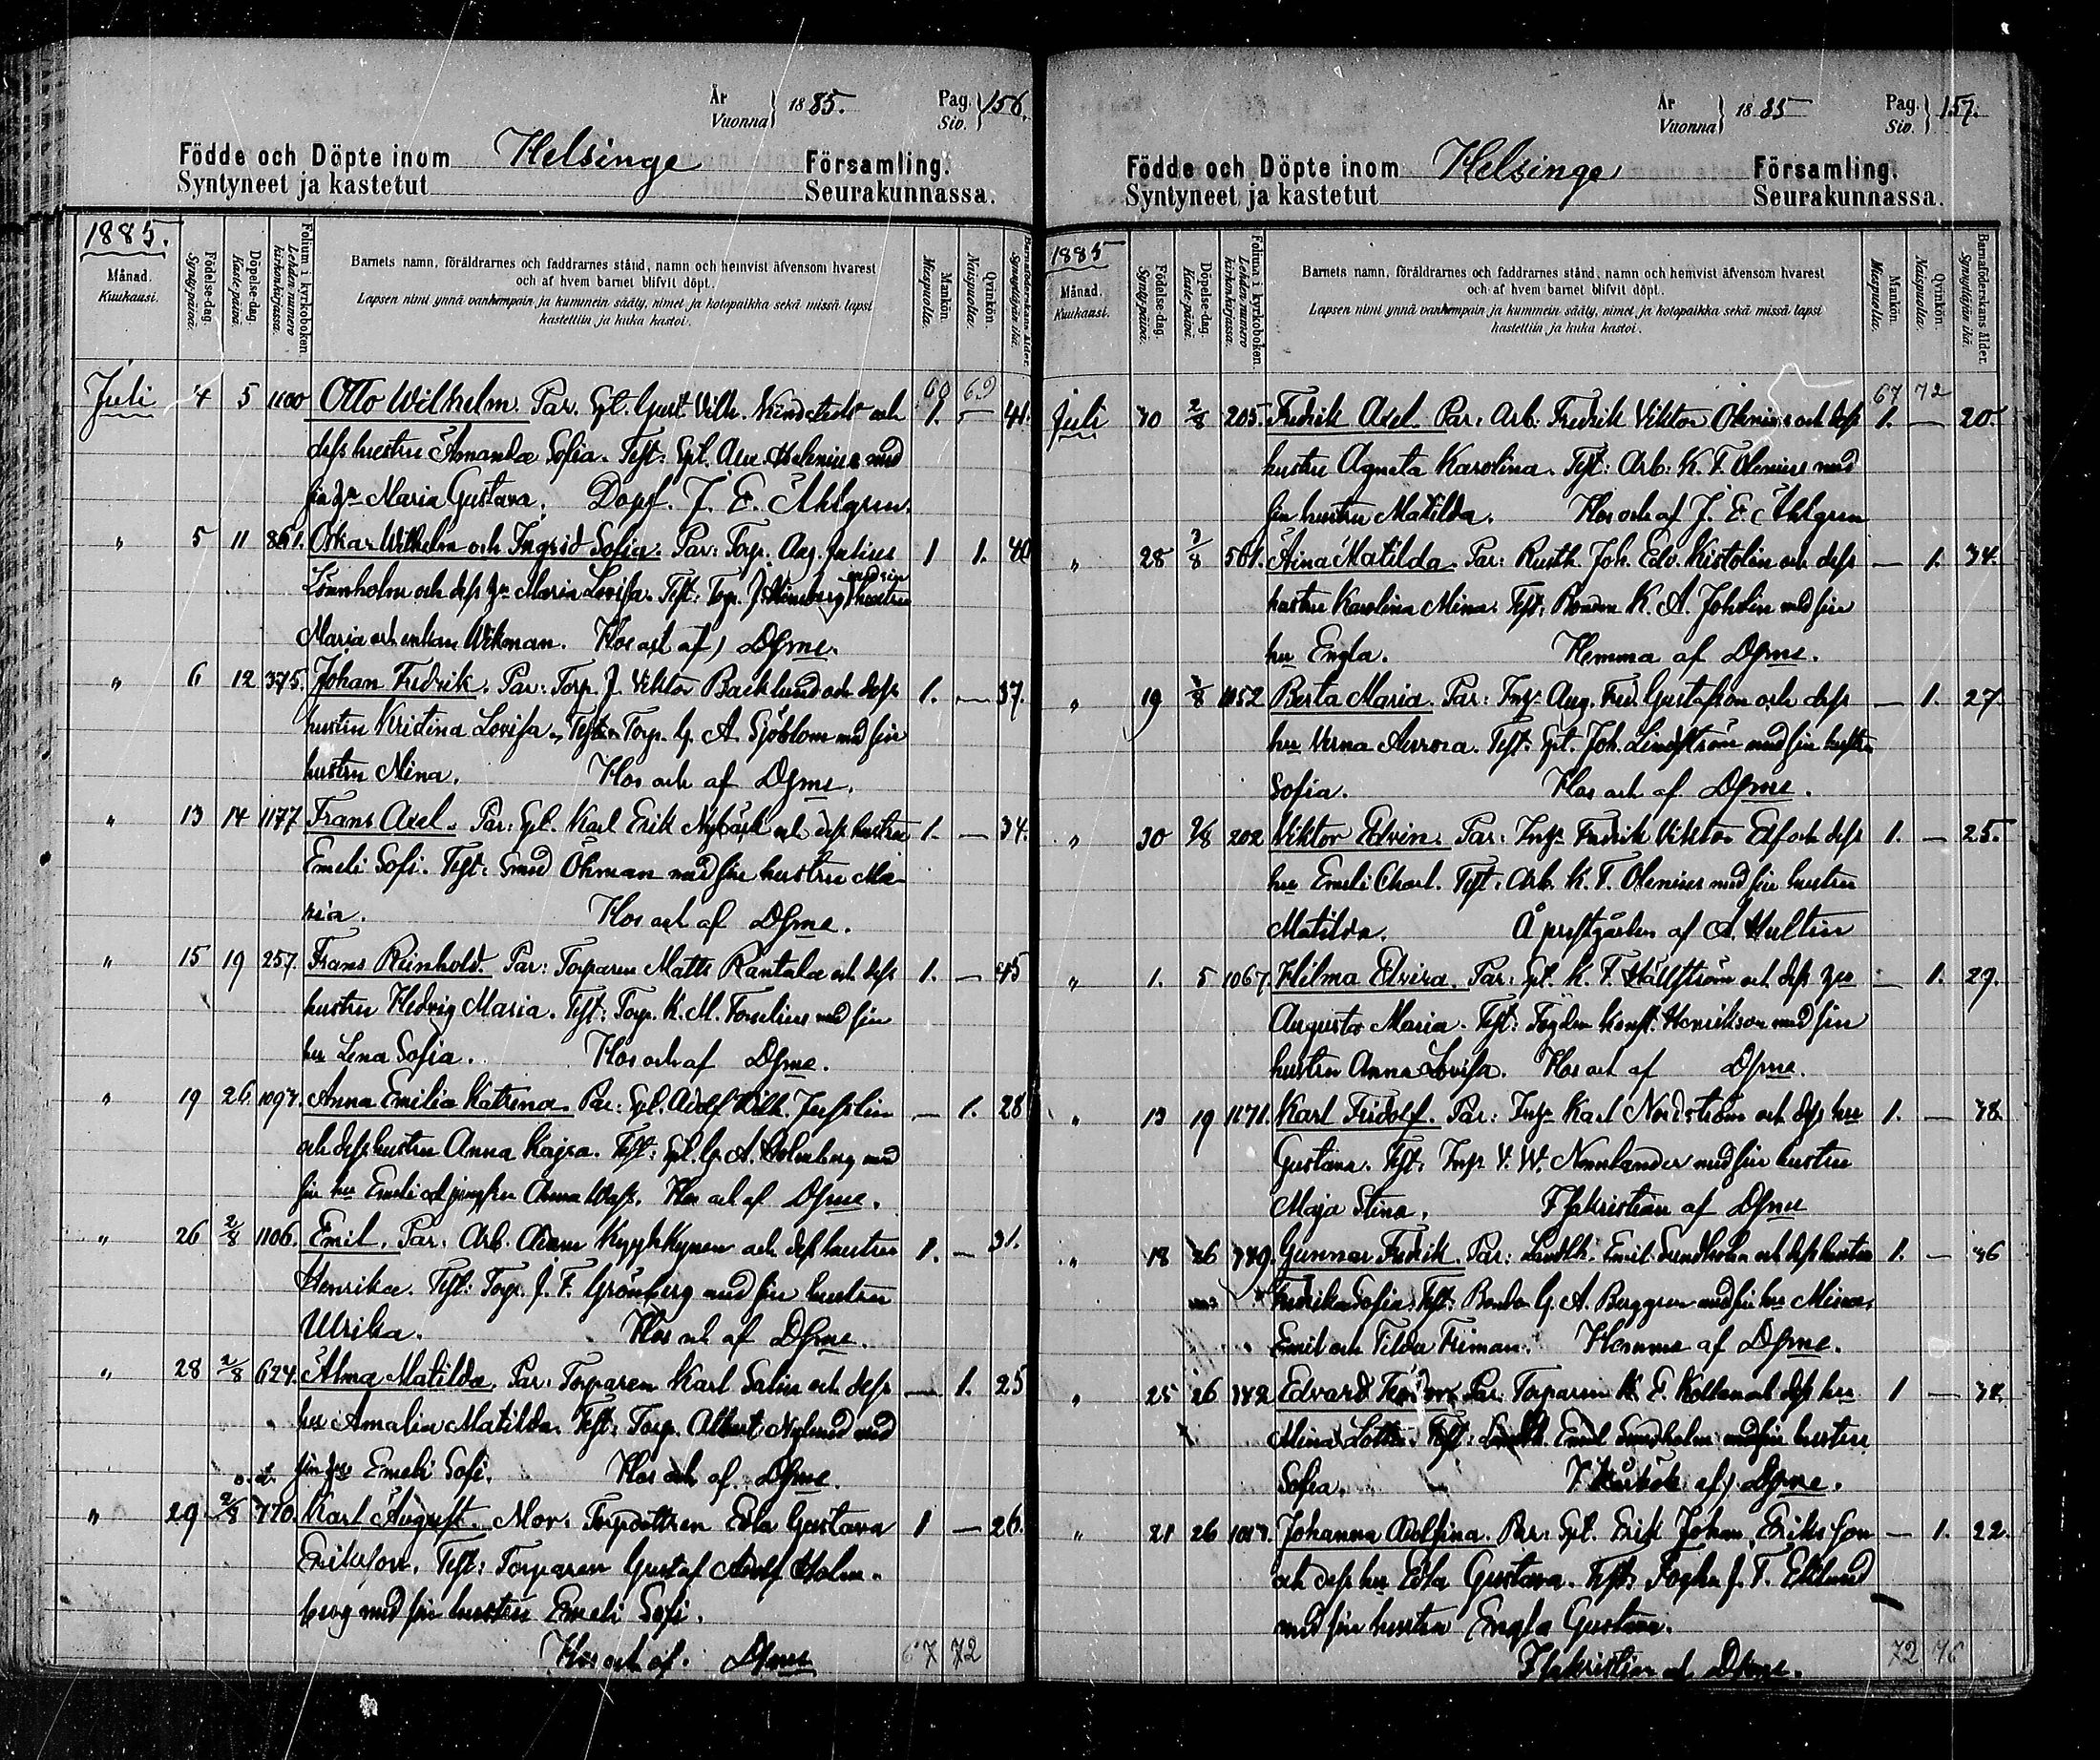 År
Vuonna } 1885. Pag. Siv. } 156.
Födde och Döpte inom Helsinge Församling.
Syntyneet ja kastetut Seurakunnassa.
1885.
Månad. Kuukausi.
Födelse-dag. Syntypäivä.
Döpelse-dag. Kastepäivä.
Folium i kyrkoboken. Lehden numero kirkonkirjassa.
Barnets namn, föräldrarnes och faddrarnes stånd, namn och hemvist äfvensom hvarest
och af hvem barnet blifvit döpt.
Lapsen nimi ynnä vanhempain ja kummein sääty, nimet ja kotopaikka sekä missä lapsi
kastettiin ja kuka kastoi.
Mankön. Miespuolia.
Qvinkön. Naispuolia.
Barnaföderskans ålder. Synnyttäjän ikä.
60 69
Juli 4 5 1100 Otto Wilhelm. Par. Spl. Gust. Vilh. och 1. — 41.
dess hustru Amanda Sofia. Test: Spl. Alex. Helenius med
sin hu Maria Gustava. Döpt. J. E. Ahlgren.
" 5 11 861. Oskar Wilhelm och Ingrid Sofia. Par: Torp. Aug. Julius 1 1. 40
Lönnholm och dess hu Maria Lovisa. Test: Torp. J. med sin hustru
Maria och enkan Wikman. Hos och af Dsme.
" 6 12 375. Johan Fredrik. Par: Torp. J. Viktor Backlund och dess 1. — 37.
hustru Kristina Lovisa. Test: Torp. G. A. Sjöblom med sin
hustru Mina. Hos och af Dsme.
" 13 14 1177 Frans Axel. Par: Spl. Karl Erik Nybäck och dess hustru 1. — 34.
Emeli Sofi. Test: Smed Öhman med sin hustru Ma-
ria. Hos och af Dsme.
" 15 19 257. Frans Reinhold. Par: Torparen Matts Rantala och dess 1. — 45
hustru Hedvig Maria. Test: Torp. K. M. Forselius med sin
hu Lena Sofia. Hos och af Dsme.
" 19 26. 1097. Anna Emilia Katrina. Par: Spl. Adolf Vilh. — 1. 28
och dess hustru Anna Kajsa. Test: Spl. G. A. Holmberg med
sin hu Emeli och jungfru Anna Wass. Hos och af Dsme.
" 26 2/8 1106. Emil. Par. Arb. Adam och dess hustru 1. — 31.
Henrika. Test: Torp. J. F. Grönberg med sin hustru
Ulrika. Hos och af Dsme.
" 28 2/8 624. Alma Matilda. Par: Torparen Karl Salin och dess — 1. 25
hu Amalia Matilda. Test: Torp. Albert Nylund med
sin hu Emeli Sofi. Hos och af Dsme.
" 29 2/8 770. Karl August. Mor: Torpdottren Edla Gustava 1 — 26.
Eriksson. Test: Torparen Gustaf Adolf Holm-
berg med sin hustru Emeli Sofi.
Hos och af Dsme 67 72
År
Vuonna } 1885 Pag. Siv. } 157.
Födde och Döpte inom Helsinge Församling.
Syntyneet ja kastetut Seurakunnassa.
1885
Månad. Kuukausi.
Födelse-dag. Syntypäivä.
Döpelse-dag. Kastepäivä.
Folium i kyrkoboken. Lehden numero kirkonkirjassa.
Barnets namn, föräldrarnes och faddrarnes stånd, namn och hemvist äfvensom hvarest
och af hvem barnet blifvit döpt.
Lapsen nimi ynnä vanhempain ja kummein sääty, nimet ja kotopaikka sekä missä lapsi
kastettiin ja kuka kastoi.
Mankön. Miespuolia.
Qvinkön. Naispuolia.
Barnaföderskans ålder. Synnyttäjän ikä.
67 72
Juli 30 2/8 205. Fredrik Axel. Par: Arb: Fredrik Viktor Olenius och dess 1. — 20.
hustru Agneta Karolina. Test: Arb: K. F. Olenius med
sin hustru Matilda. Hos och af J. E. Ahlgren
" 28 2/8 561. Aina Matilda. Par: Rusth. Joh. Edv. och dess — 1. 34.
hustru Karolina Mina. Test: Bonden K. A. med sin
hu Engla. Hemma af Dsme.
" 19 2/8 1152 Berta Maria. Par: Inh. Aug. Fred. Gustafson och dess — 1. 27.
hu Verna Aurora. Test: Spt. Joh. Lindström med sin hustru
Sofia. Hos och af Dsme.
" 30 2/8 202 Viktor Edvin. Par: Inh. Fredrik Viktor Elf och dess 1. — 25.
hu Emeli Charl. Test: Arb. K. F. Olenius med sin hustru
Matilda. Å prestgården af A. Hultin
" 1. 5 1067. Hilma Elvira. Par: Spl. K. F. Hällström och dess hu — 1. 29.
Augusta Maria. Test: Fogden Konst. Henrikson med sin
hustru Anna Lovisa. Hos och af Dsme.
" 13 19 1171. Karl Fridolf. Par: Inh. Karl Nordström och dess hu 1. — 38.
Gustava. Test: Inh. V. W. Nornlander med sin hustru
Maja Stina. I sakristian af Dsme
" 18 26 349. Gunnar Fredrik. Par: Landth. Emil Sundholm och dess hustru 1. — 36
Fredrika Sofia. Test: Bonden G. A. Berggren med sin hu Mina.
Emil och Tilda Friman. Hemma af Dsme.
" 25 26 342 Edvard Par: Torparen K. F. och dess hu 1 — 32.
Mina Lotta. Test: Landth. Emil Sundholm med sin hustru
Sofia. af Dsme.
" 21 26 1017. Johanna Adolfina. Par: Spl. Erik Johan Eriksson — 1. 22.
och dess hu Edla Gustava. Test: Fogden J. F. Eklund
med sin hustru Engla Gustava.
I sakristian af Dsme. 72 76